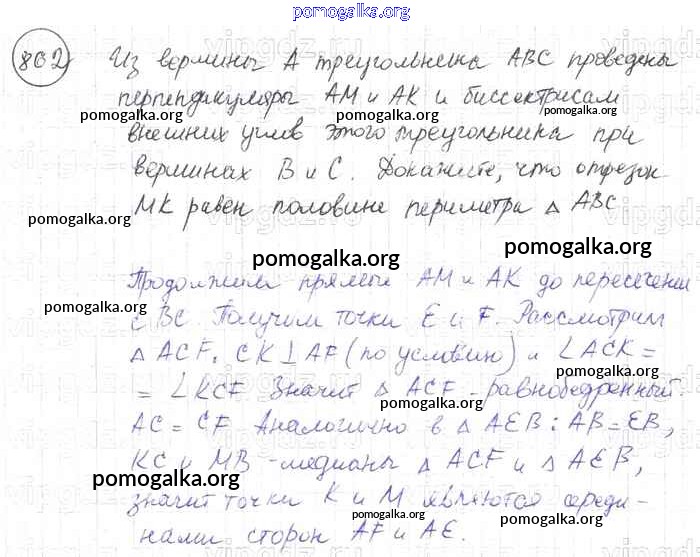 pomogalka.org
802 Из вершины А треугольника ABC проведены
перпендикуляры AM и AK к биссектрисам
pomogalka.org pomogalka.org
внешних углов этого треугольника при
вершинах B и C. Докажите, что отрезок
MK равен половине периметра △ ABC
pomogalka.org pomogalka.org
pomogalka.org
Продолжим прямые AM и AK до пересечения
pomogalka.org
с BC. Получим точки E и F. Рассмотрим
△ ACF, CK⊥AF (по условию) и ∠ACK =
= ∠KCF. Значит △ ACF - равнобедренный.
pomogalka.org pomogalka.org
AC = CF. Аналогично в △ AEB: AB = EB,
KC и MB - медианы △ ACF и △ AEB,
pomogalka.org pomogalka.org
значит точки K и M являются середи-
pomogalka.org
нами сторон AF и AE.
pomogalka.org